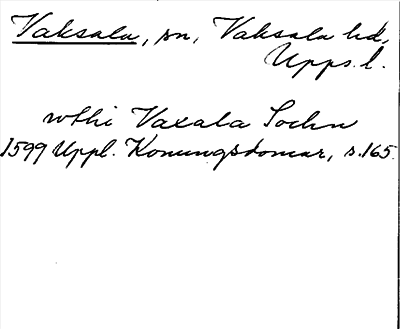 Vaksala, sn, Vaksala hd,
Upps. l.
wthi Vaxala Sochn
1599 Uppl. Konungsdomar, s. 165.